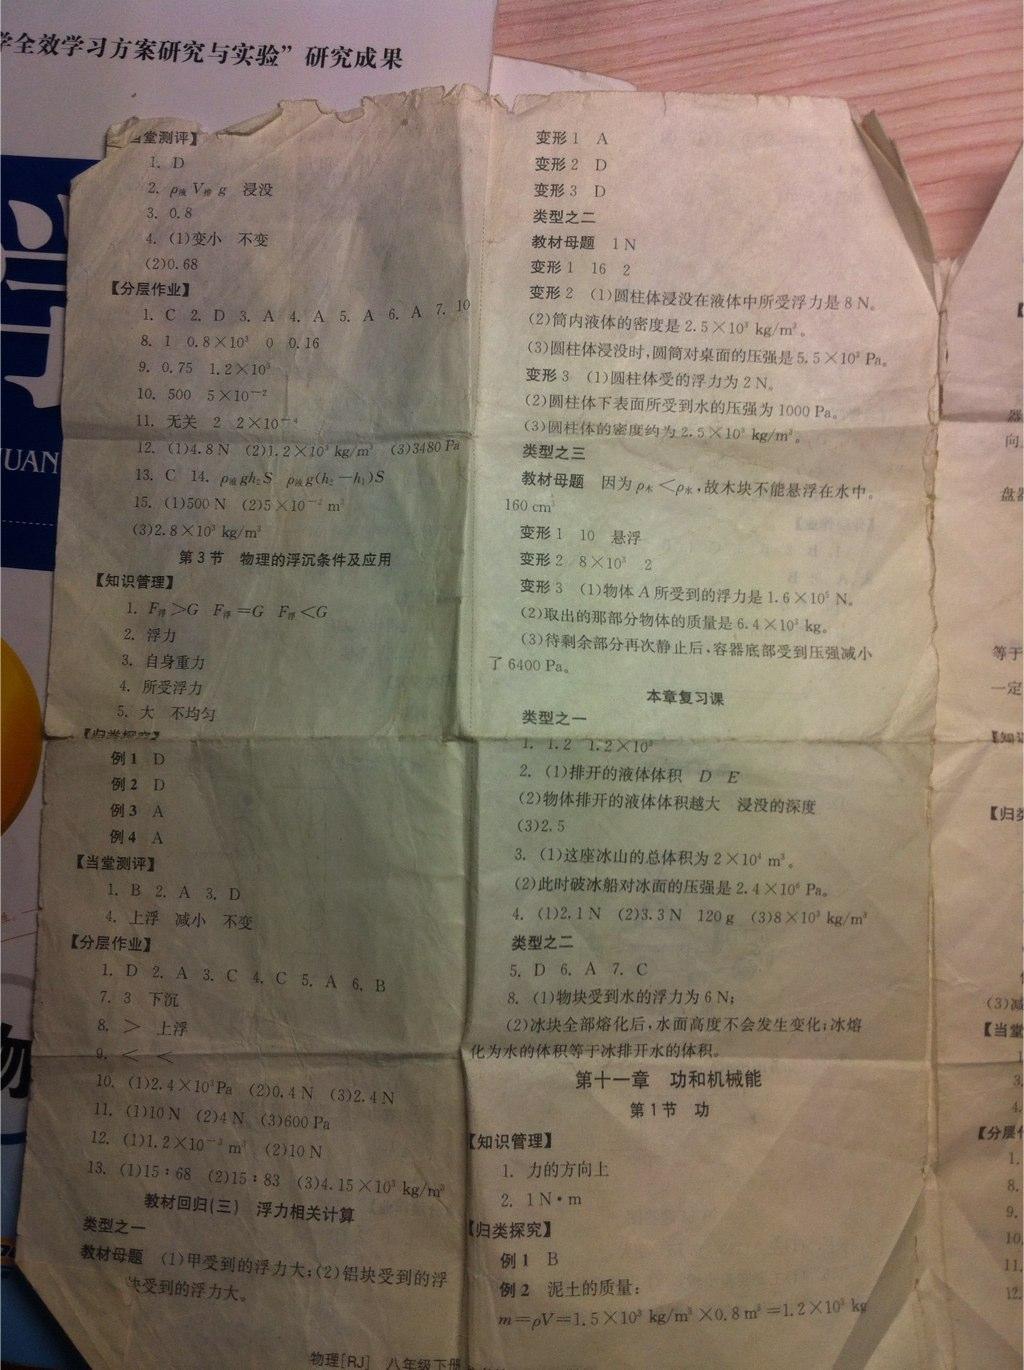 学全效学习方案研究与实验”研究成果
当堂测评】
1. D
2. ρ液 V排 g 浸没
3. 0.8
4. (1)变小 不变
(2)0.68
【分层作业】
1. C 2. D 3. A 4. A 5. A 6. A 7. 10
8. 1 0.8×10³ 0 0.16
9. 0.75 1.2×10³
10. 500 5×10⁻²
11. 无关 2 2×10⁻⁴
12. (1)4.8 N (2)1.2×10³ kg/m³ (3)3480 Pa
13. C 14. ρ液gh₂S ρ液g(h₂-h₁)S
15. (1)500 N (2)5×10⁻² m³
(3)2.8×10³ kg/m³
第3节 物理的浮沉条件及应用
【知识管理】
1. F浮>G F浮=G F浮<G
2. 浮力
3. 自身重力
4. 所受浮力
5. 大 不均匀
【归类探究】
例1 D
例2 D
例3 A
例4 A
【当堂测评】
1. B 2. A 3. D
4. 上浮 减小 不变
【分层作业】
1. D 2. A 3. C 4. C 5. A 6. B
7. 3 下沉
8. > 上浮
9. < <
10. (1)2.4×10³Pa (2)0.4 N (3)2.4 N
11. (1)10 N (2)4 N (3)600 Pa
12. (1)1.2×10⁻³ m³ (2)10 N
13. (1)15∶68 (2)15∶83 (3)4.15×10³ kg/m³
教材回归(三) 浮力相关计算
类型之一
教材母题 (1)甲受到的浮力大;(2)铝块受到的浮
块受到的浮力大。
物理[RJ] 八年级下册
变形1 A
变形2 D
变形3 D
类型之二
教材母题 1 N
变形1 16 2
变形2 (1)圆柱体浸没在液体中所受浮力是8 N。
(2)筒内液体的密度是2.5×10³ kg/m³。
(3)圆柱体浸没时,圆筒对桌面的压强是5.5×10³ Pa。
变形3 (1)圆柱体受的浮力为2 N。
(2)圆柱体下表面所受到水的压强为1000 Pa。
(3)圆柱体的密度约为2.5×10³ kg/m³。
类型之三
教材母题 因为ρ木<ρ水,故木块不能悬浮在水中。
160 cm³
变形1 10 悬浮
变形2 8×10³ 2
变形3 (1)物体A所受到的浮力是1.6×10⁵ N。
(2)取出的那部分物体的质量是6.4×10³ kg。
(3)待剩余部分再次静止后,容器底部受到压强减小
了6400 Pa。
本章复习课
类型之一
1. 1.2 1.2×10³
2. (1)排开的液体体积 D E
(2)物体排开的液体体积越大 浸没的深度
(3)2.5
3. (1)这座冰山的总体积为2×10⁴ m³。
(2)此时破冰船对冰面的压强是2.4×10⁶ Pa。
4. (1)2.1 N (2)3.3 N 120 g (3)8×10³ kg/m³
类型之二
5. D 6. A 7. C
8. (1)物块受到水的浮力为6 N;
(2)冰块全部熔化后,水面高度不会发生变化;冰熔
化为水的体积等于冰排开水的体积。
第十一章 功和机械能
第1节 功
【知识管理】
1. 力的方向上
2. 1 N·m
【归类探究】
例1 B
例2 泥土的质量:
m=ρV=1.5×10³ kg/m³×0.8 m³=1.2×10³ kg
器
向
盘器
等于
一定
【知识
【归类
(3)减
【当堂
1.
3.
4.
【分层
1.
8.
9.
10.
11.
12.
学
UAN
物